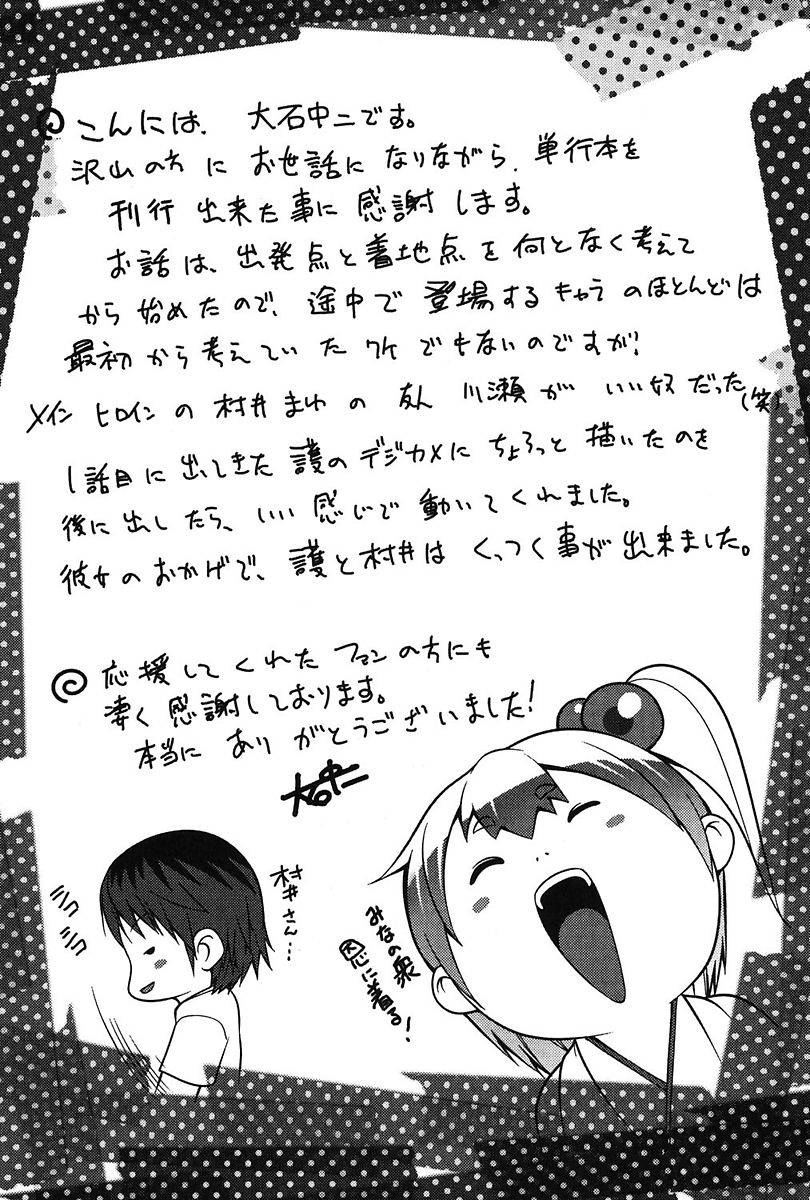 こんには、大石中二です。
沢山の方にお世話になりながら、単行本を
刊行出来た事に感謝します。
お話は、出発点と着地点を何となく考えて
から始めたので、途中で登場するキャラのほとんどは
最初から考えていたワケでもないのですが、
メインヒロインの村井まゆの友人川瀬がいい奴だった(笑)
1話目に出してきた護のデジカメにちょろっと描いたのを
後に出したら、いい感じで動いてくれました。
彼女のおかげで、護と村井はくっつく事が出来ました。
応援してくれたファンの方にも
凄く感謝しております。
本当にありがとうございました!
大石中二
村井さん…
みなの衆
恩に着る!